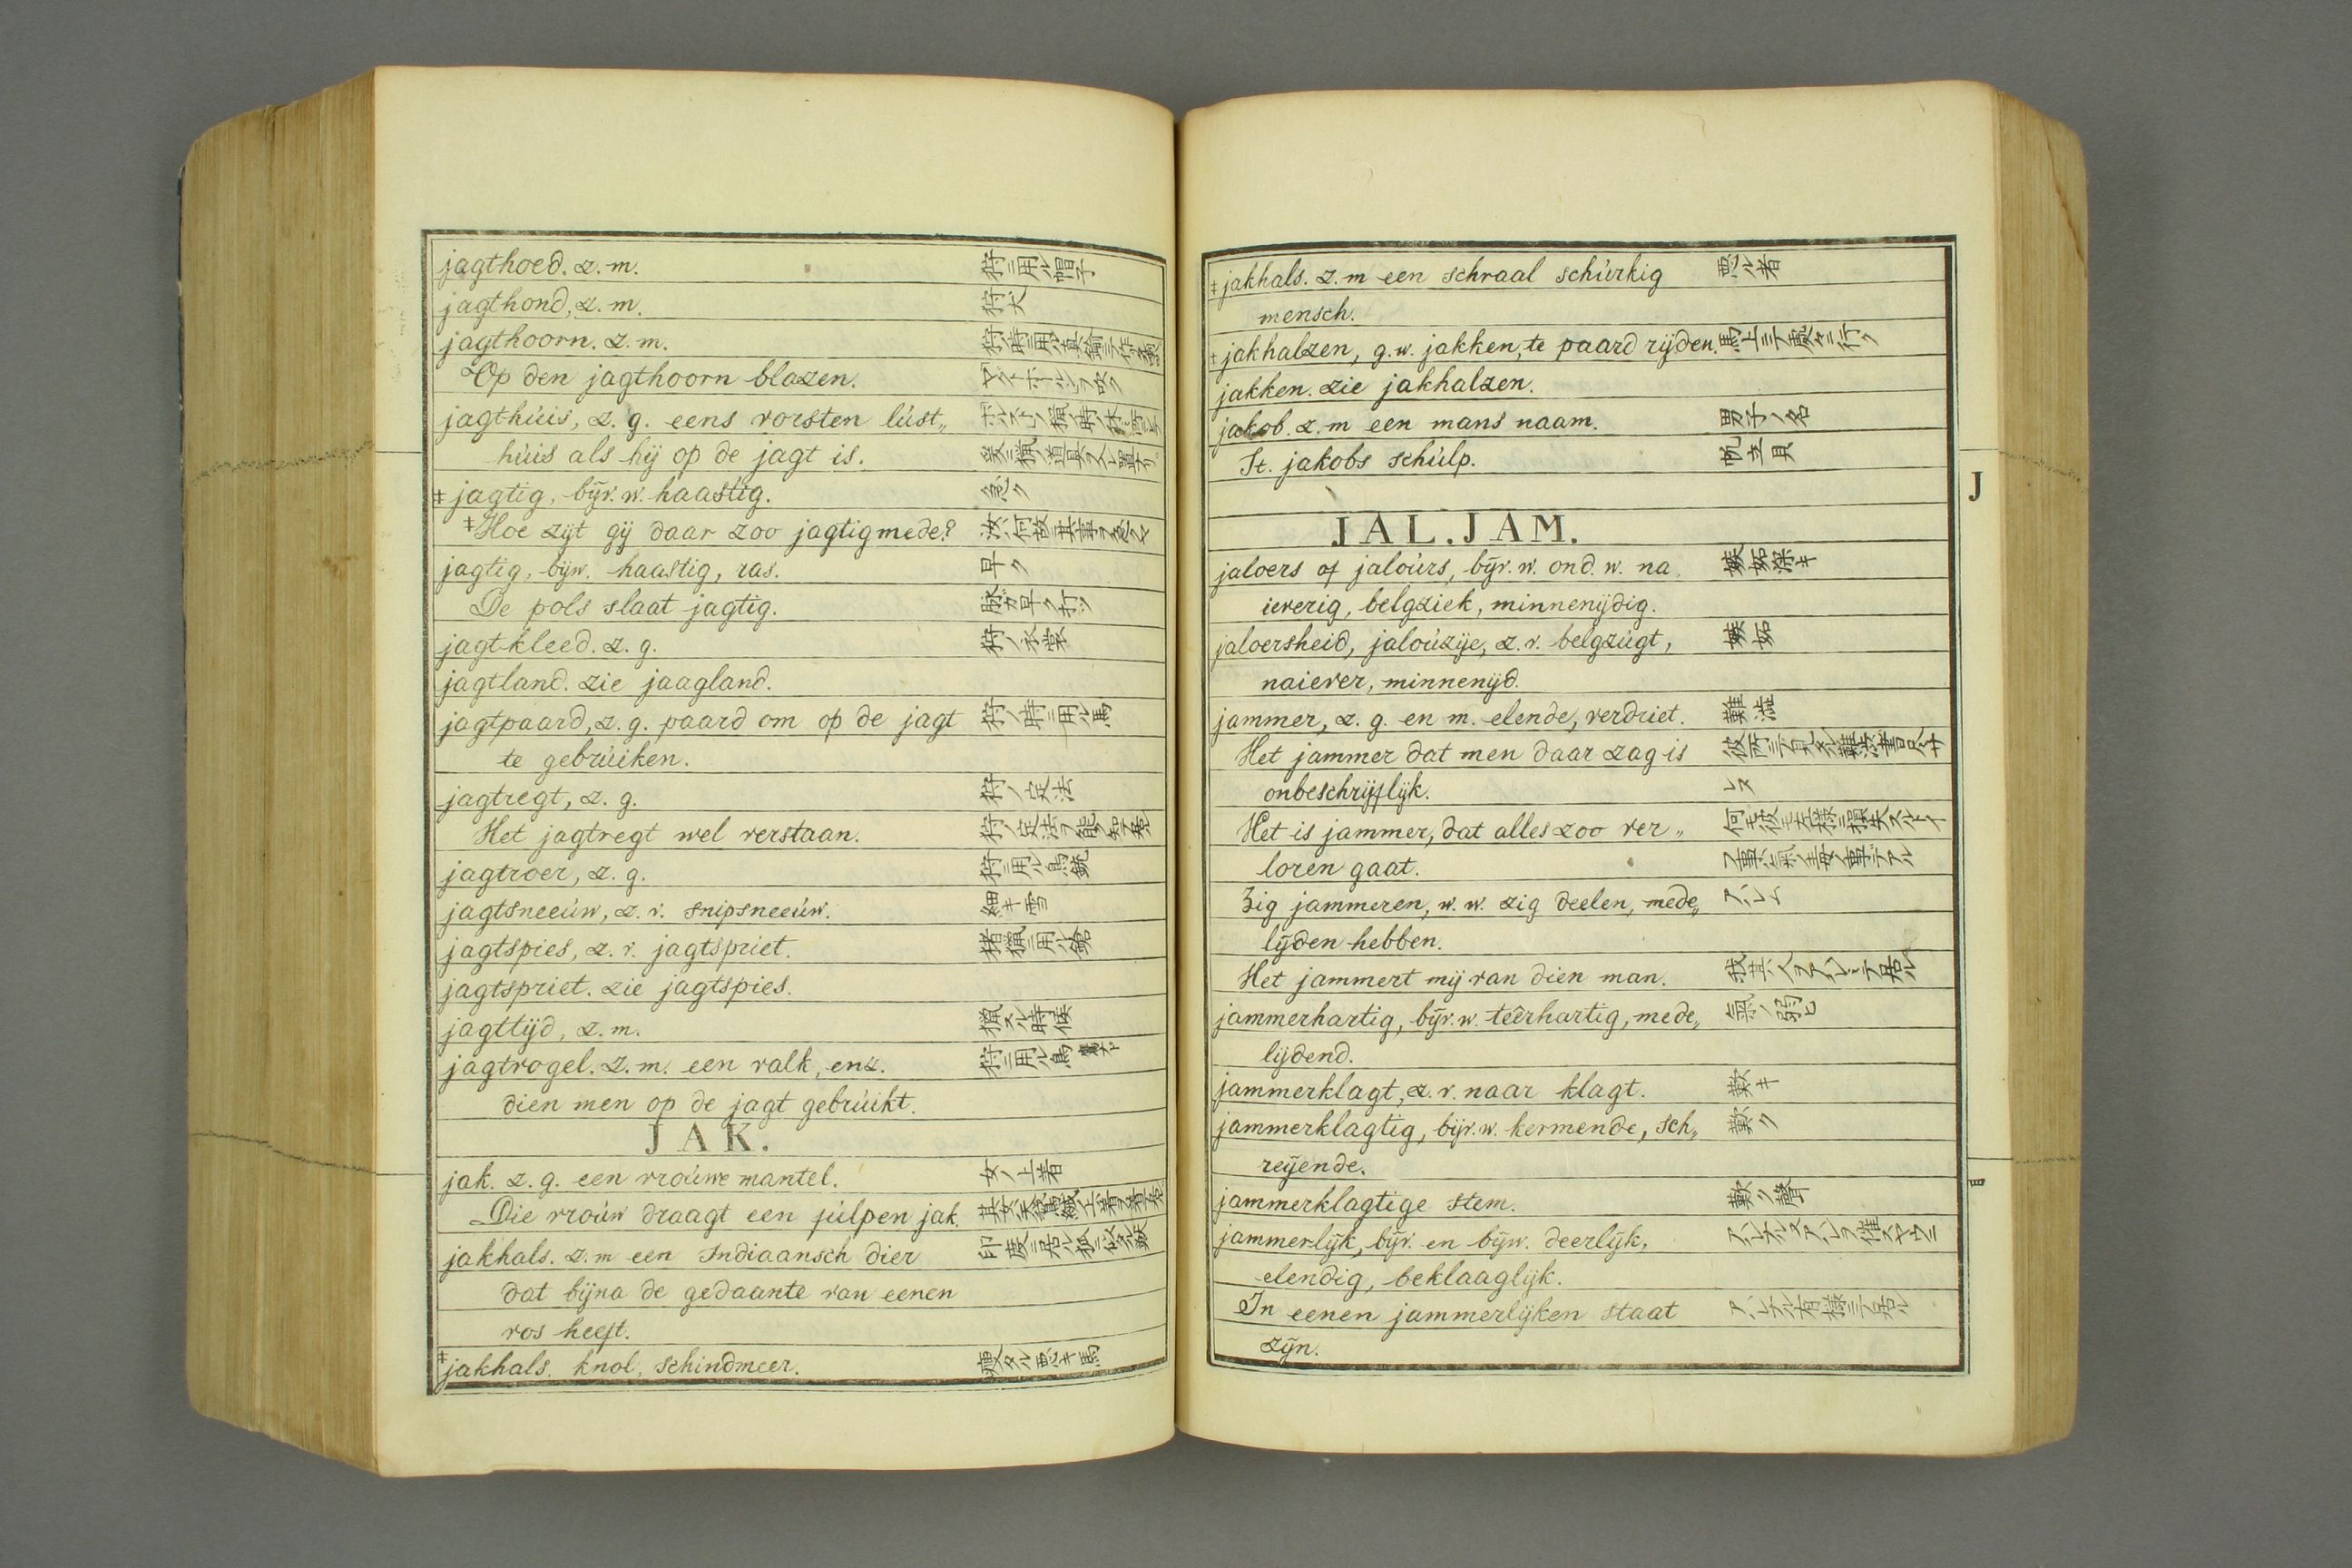 jagthoed. z. m. 狩ニ用ル帽子
jagthond, z. m. 狩犬
jagthoorn. z. m.
Op den jagthoorn blazen. ヤクトホールンヲ吹ク
jagthúis, z. g. eens vorsten lúst„
húis als hij op de jagt is.
‡ jagtig, bijv. w. haastig. 急ク
‡ Hoe zijt gij daar zoo jagtig mede? 汝ハ何故ニ其事ヲ急クヤ
jagtig, bijw. haastig, ras. 早ク
De pols slaat jagtig. 脉ガ早ク打ツ
jagt-kleed. z. g. 狩ノ衣裳
jagtland. zie jaagland.
jagtpaard, z. g. paard om op de jagt 狩ノ時ニ用ル馬
te gebrúiken.
jagtregt, z. g. 狩ノ定法
Het jagtregt wel verstaan. 狩ノ定法ヲ能ク知テ居ル
jagtroer, z. g. 狩ニ用ル鳥銃
jagtsneeúw, z. v. snipsneeúw. 細キ雪
jagtspies, z. v. jagtspriet. 猪獵ニ用ル鎗
jagtspriet. zie jagtspies.
jagttijd, z. m. 獵スル時候
jagtvogel. z. m. een valk, enz. 狩ニ用ル鳥 鷹ナド
dien men op de jagt gebrúikt.
JAK.
jak. z. g. een vroúwe mantel. 女ノ上着
Die vroúw draagt een júlpen jak.
jakhals. z. m een Indiaansch dier 印度ニ居ル狐ニ似タル獣
dat bijna de gedaante van eenen
vos heeft.
‡ jakhals. knol, schindmeer. 痩タル悪キ馬
‡ jakhals. z. m een schraal schúrkig 悪ル者
mensch.
‡ jakhalzen, g. w. jakken, te paard rijden. 馬上ニテ處々ニ行ク
jakken. zie jakhalzen.
jakob. z. m een mans naam. 男子ノ名
St. jakobs schúlp. 帆立貝
J
JAL. JAM.
jaloers of jaloúrs, bijv. w. ond. w. na 嫉妬深キ
ieverig, belgziek, minnenijdig.
jaloersheid, jaloúzije, z. v. belgzúgt, 嫉妬
naiever, minnenijd.
jammer, z. g. en m. elende, verdriet. 難澁
Het jammer dat men daar zag is 彼所ニテ見タル難澁ハ書尽サ
onbeschrijflijk. レヌ
Het is jammer, dat alles zoo ver„ 何モ彼モ左様ニ損失スルト云
loren gaat. フ事ハ氣ノ毒ノ事デアル
Zig jammeren, w. w. zig deelen, mede„ アハレム
lijden hebben.
Het jammert mij van dien man. 我其人ヲアハレンテ居ル
jammerhartig, bijv. w. teêrhartig, mede„ 氣ノ弱ヒ
lijdend.
jammerklagt, z. v. naar klagt. 歎キ
jammerklagtig, bijv. w. kermende, sch„ 歎ク
reijende.
jammerklagtige stem. 歎ク聲
jammerlijk, bijv. en bijw. deerlijk,
elendig, beklaaglijk.
In eenen jammerlijken staat アハレナル有様ニテ居ル
zijn.